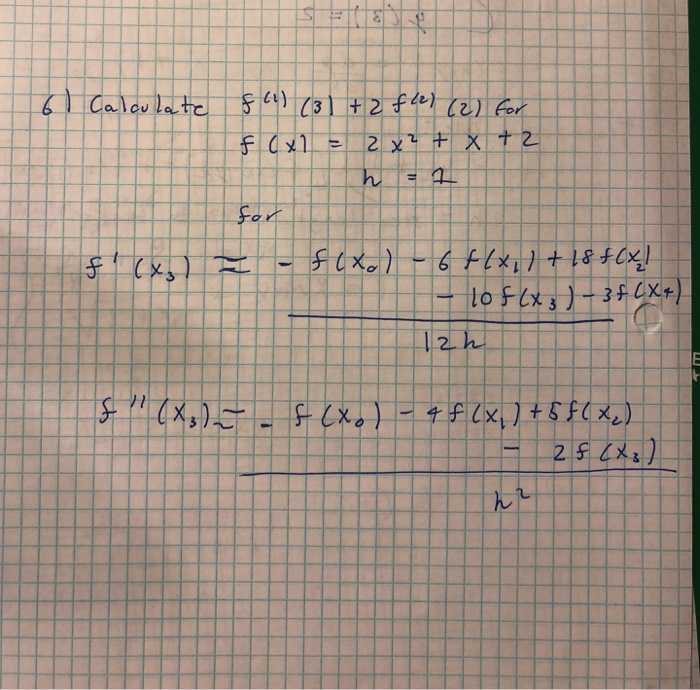 6) Calculate f⁽¹⁾(3) + 2 f⁽²⁾(2) for
f(x) = 2x² + x + 2
h = 1
for
f'(x₃) ≈ - f(x₀) - 6 f(x₁) + 18 f(x₂)
- 10 f(x₃) - 3 f(x₄)
12h
f''(x₃) ≈ - f(x₀) - 4 f(x₁) + 5 f(x₂)
- 2 f(x₃)
h²